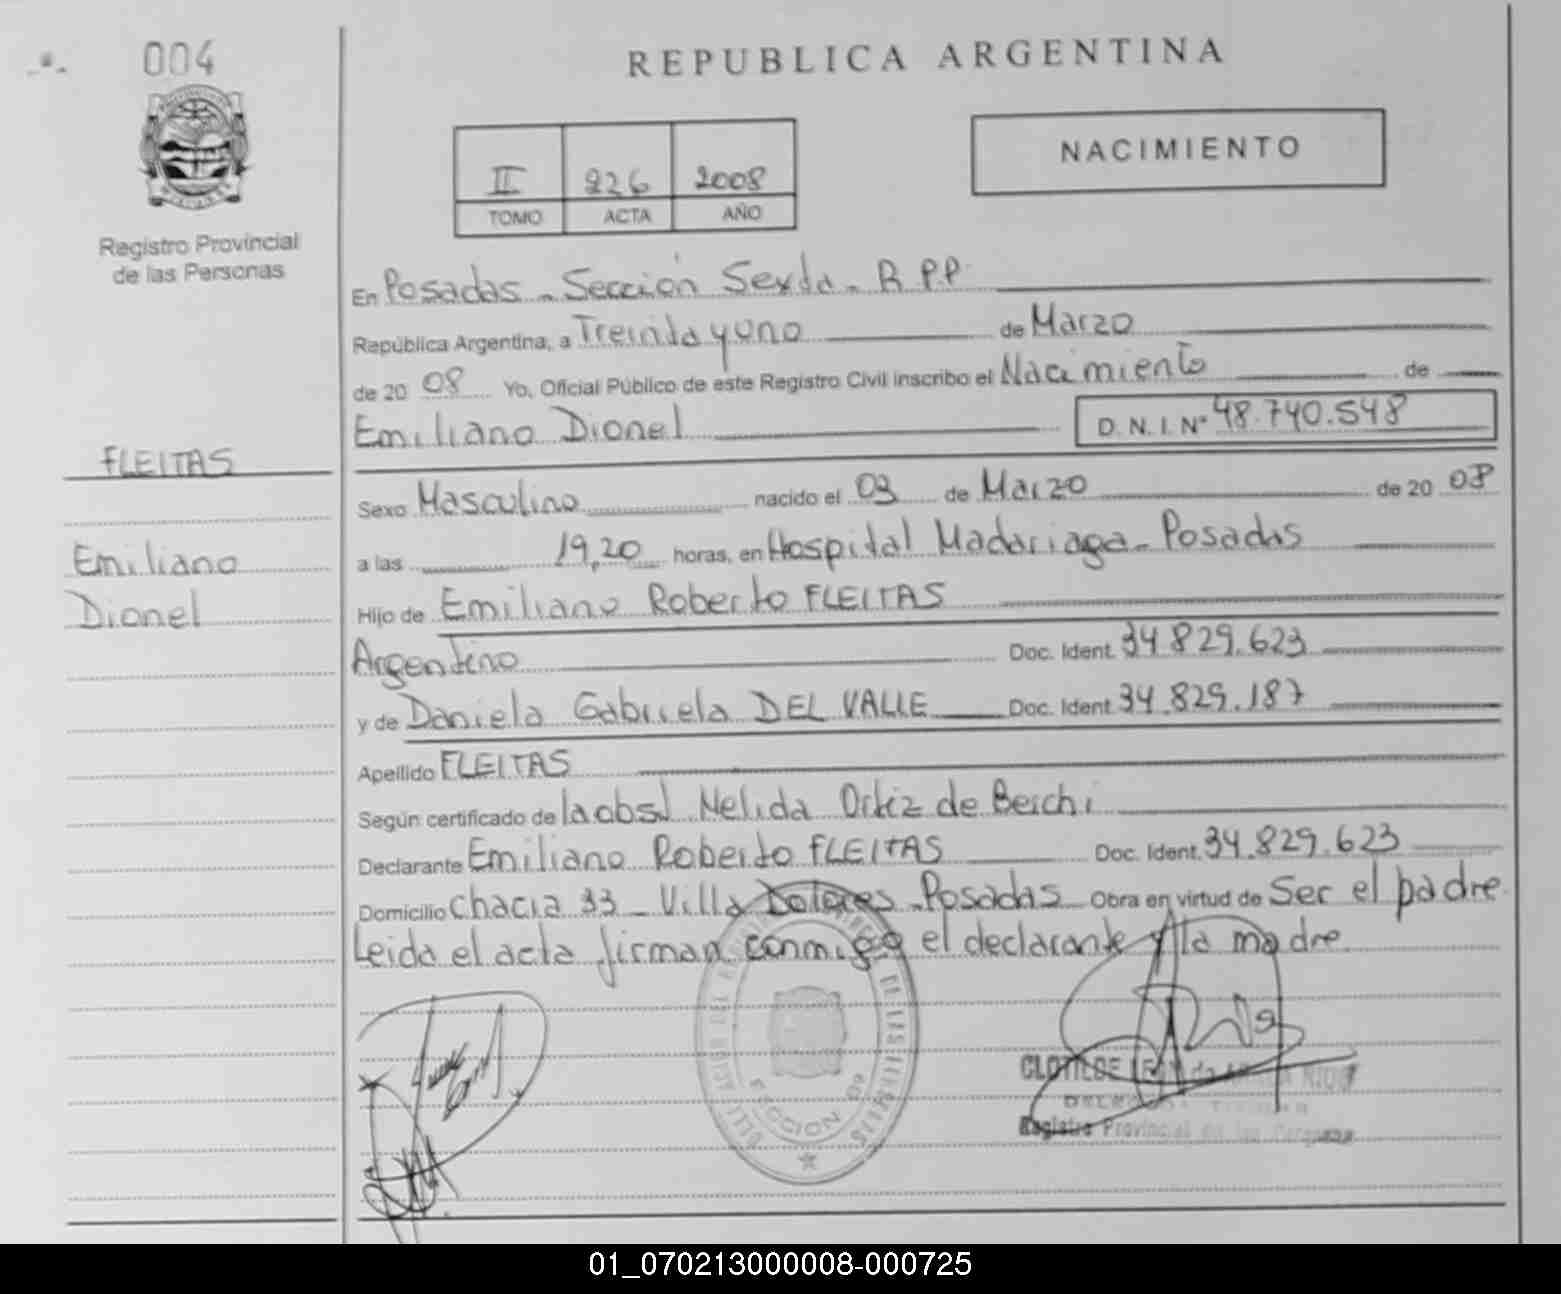 004
REPUBLICA ARGENTINA
NACIMIENTO
II 226 2008
TOMO ACTA AÑO
Registro Provincial
de las Personas
En Posadas - Sección Sexta - R.P.P.
República Argentina, a Treinta y uno de Marzo
de 20 08 Yo, Oficial Público de este Registro Civil inscribo el Nacimiento de
Emiliano Dionel D.N.I. Nº 48.740.548
FLEITAS
Sexo Masculino nacido el 03 de Marzo de 20 08
Emiliano
Dionel
a las 19,20 horas, en Hospital Madariaga - Posadas
Hijo de Emiliano Roberto FLEITAS
Argentino Doc. Ident. 34.829.623
y de Daniela Gabriela DEL VALLE Doc. Ident. 34.829.187
Apellido FLEITAS
Según certificado de la obst. Nelida Ortiz de Beichi
Declarante Emiliano Roberto FLEITAS Doc. Ident. 34.829.623
Domicilio chacra 33 - Villa Dolores - Posadas Obra en virtud de Ser el padre.
Leida el acta firman conmigo el declarante y la madre.
CLOTILDE
Registro Provincial de las Personas
01_070213000008-000725